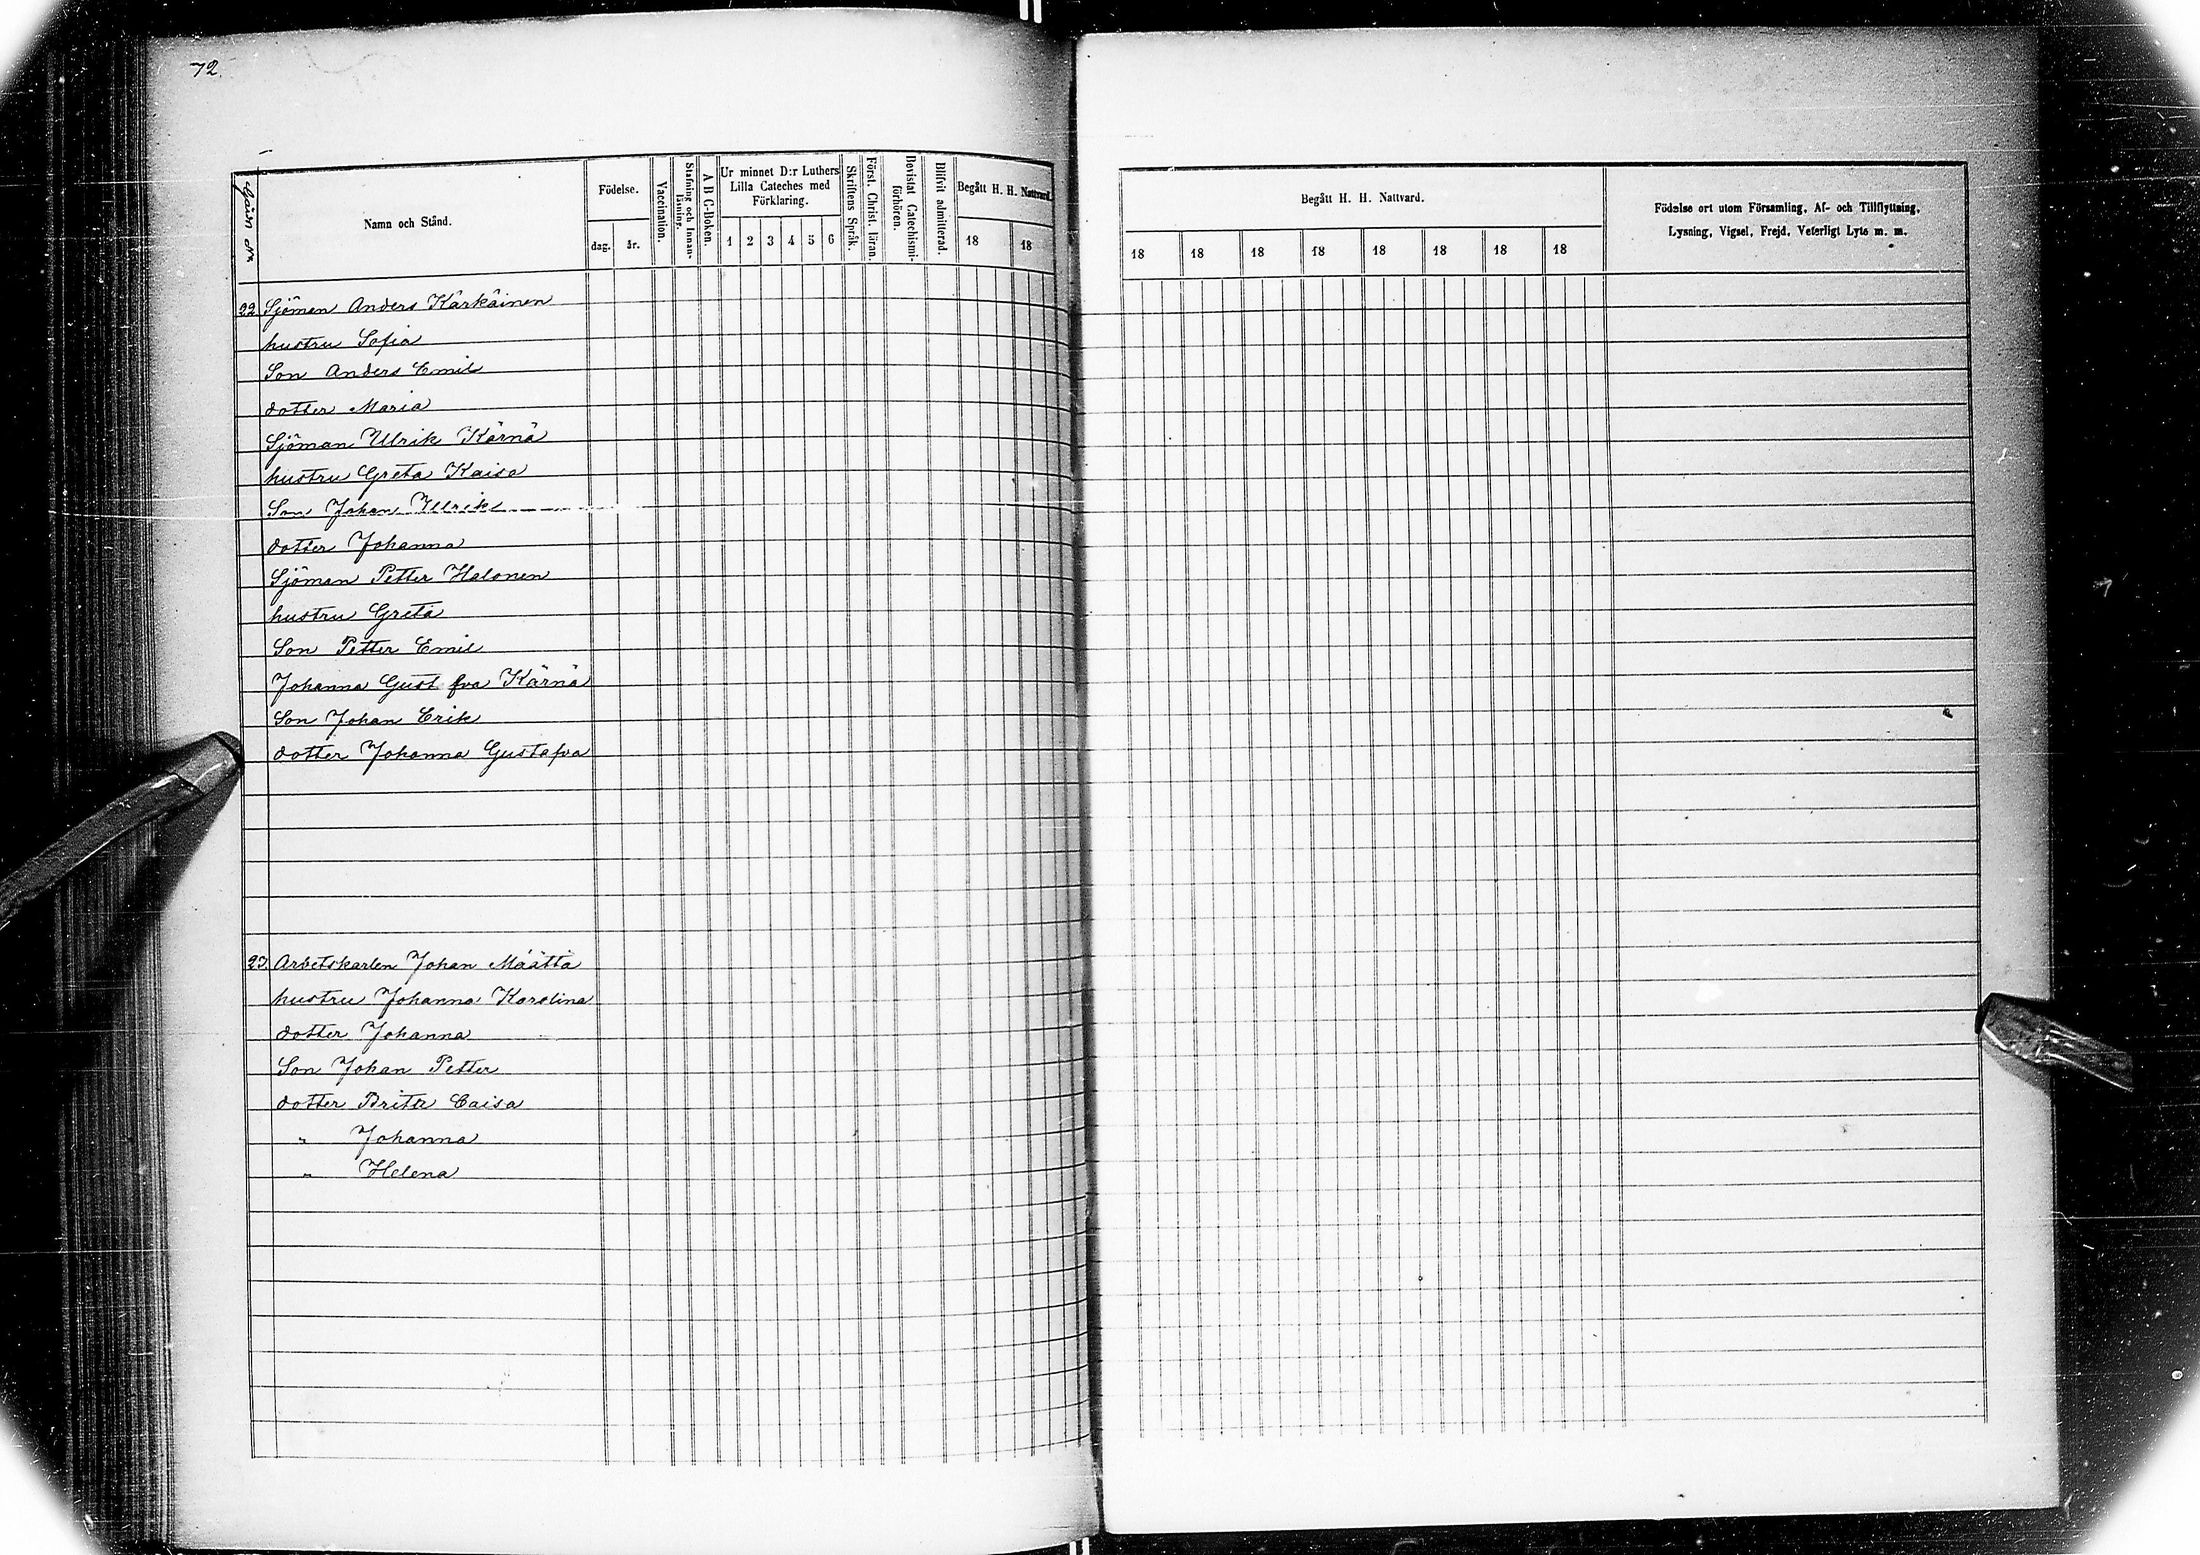 72.
Gård Nr
Namn och Stånd.
Födelse.
dag.
år.
Vaccination.
Stafning och Innan-
läsning.
A B C-Boken.
Ur minnet D:r Luthers
Lilla Cateches med
Förklaring.
1 2 3 4 5 6
Skriftens Språk.
Först. Christ. läran.
Bevistat Catechismi-
förhören.
Blifvit admitterad.
Begått H. H. Nattvard.
18 18
22 Sjöman Anders Kärkäinen
hustru Sofia
Son Anders Emil
dotter Maria
Sjöman Ulrik Kärnä
hustru Greta Kaisa
Son Johan Ullrik
dotter Johanna
Sjöman Petter Halonen
hustru Greta
Son Petter Emil
Johanna Gust fva Kärnä
Son Johan Erik
dotter Johanna Gustafva
23 Arbetskarlen Johan Määttä
hustru Johanna Karolina
dotter Johanna
Son Johan Petter
dotter Brita Caisa
" Johanna
" Helena
Begått H. H. Nattvard.
18 18 18 18 18 18 18 18
Födelse ort utom Församling, Af- och Tillflyttning,
Lysning, Vigsel, Frejd, Veterligt Lyte m. m.